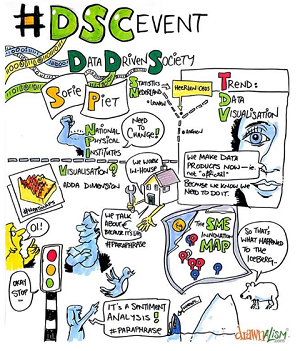 #DSCEVENT
DATA DRIVEN SOCIETY
SOFIE
PIET
STATISTICS
NEDERLAND
HEERLEN CBS
TREND:
DATA
VISUALISATION
NATIONAL
PHYSICAL
INSTITUTES
NEED
TO
CHANGE!
WE MAKE DATA
PRODUCTS NOW - i.e.
not "official"
BECAUSE WE KNOW WE
NEED TO DO IT.
VISUALISATION?
ADDA DIMENSION
WE WORK
IN-HOUSE
OI!
WE TALK
ABOUT
BECAUSE IT'S
#PARAPHRASE
THE SME
INNOVATION
MAP
SO THAT'S
WHAT HAPPENED
TO THE
ICEBERG...
OKAY
STOP
...
IT'S A SENTIMENT
ANALYSIS!
#PARAPHRASE
drawnalism